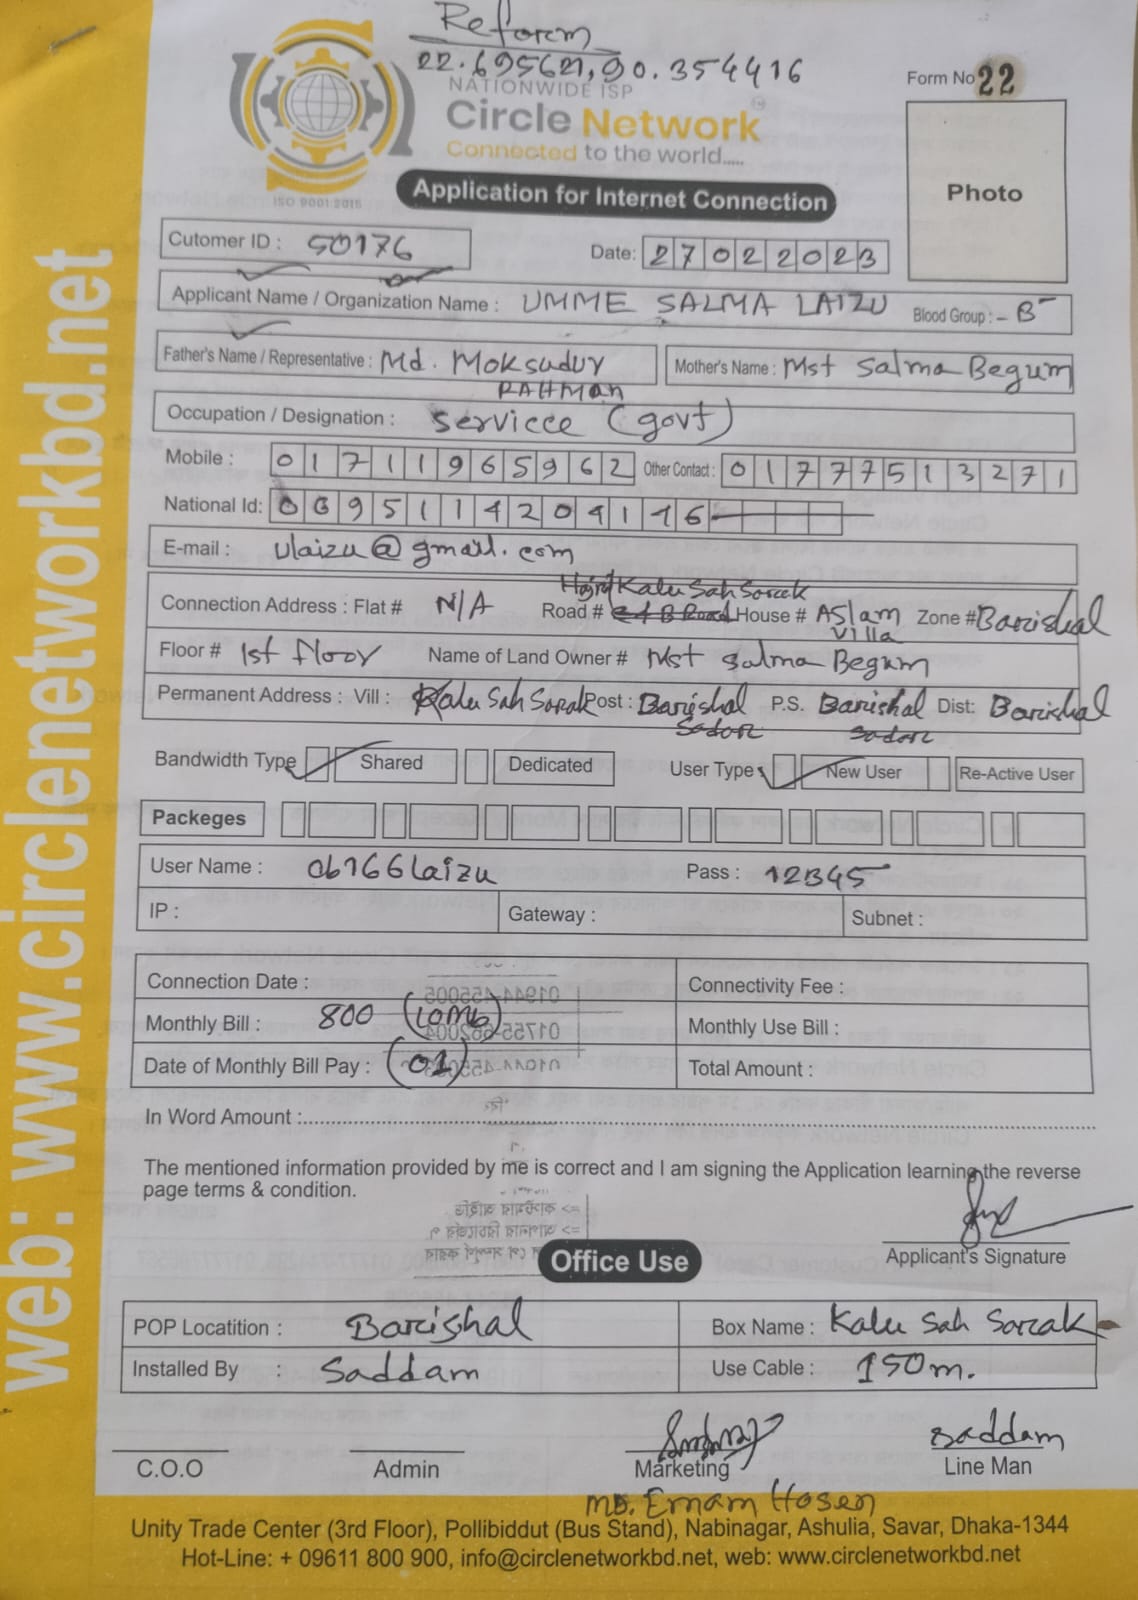 Reform
22.695621,90.354416
NATIONWIDE ISP
Form No 22
Circle Network
Connected to the world.....
ISO 9001:2015
Photo
Application for Internet Connection
Cutomer ID : 50176
Date: 27022023
Applicant Name / Organization Name : UMME SALMA LAIZU Blood Group : - B-
Father's Name / Representative : Md. Moksudur RAHMAN Mother's Name : Mst Salma Begum
Occupation / Designation : servicce (govt)
Mobile : 01711965962 Other Contact : 01777513271
National Id:
E-mail : ulaizu@gmail.com
Connection Address : Flat # N/A Road # Kalu Sah Sorcek House # ASlam villa Zone # Barishal
Floor # 1st floor Name of Land Owner # Mst Salma Begum
Permanent Address : Vill : Kalu Sah Sorak Post : Barishal Sador P.S. Barishal Sador Dist: Barishal
Bandwidth Type Shared Dedicated User Type New User Re-Active User
Packeges
User Name : ob166laizu Pass : 12345
IP : Gateway : Subnet :
Connection Date : Connectivity Fee :
Monthly Bill : 800 (10Mb) Monthly Use Bill :
Date of Monthly Bill Pay : (01) Total Amount :
In Word Amount :
The mentioned information provided by me is correct and I am signing the Application learning the reverse
page terms & condition.
Applicant's Signature
Office Use
POP Locatition : Barishal Box Name : Kalu Sah Sorak
Installed By : Saddam Use Cable : 150m.
saddam
C.O.O Admin Marketing Line Man
MD. Emam Hosen
Unity Trade Center (3rd Floor), Pollibiddut (Bus Stand), Nabinagar, Ashulia, Savar, Dhaka-1344
Hot-Line: + 09611 800 900, info@circlenetworkbd.net, web: www.circlenetworkbd.net
web: www.circlenetworkbd.net